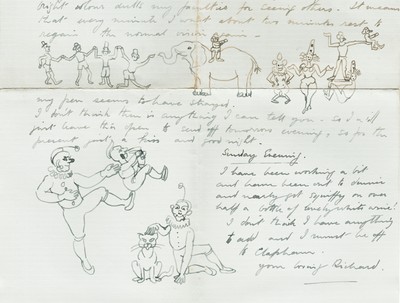 right colour dulls my faculties for seeing others. It means
that every minute I want about two minutes rest to
regain the normal vision again -
my pen seems to have strayed.
I don't think there is anything I can tell you. So I will
just leave this open to send off tomorrow evening, so for the
present just a kiss and good night.
Sunday Evening.
I have been working a bit
and have been out to
and nearly got squiffy on over
half a bottle of lovely white wine!
I don't think I have anything
to add and I must be off
to Clapham.
your loving Richard.